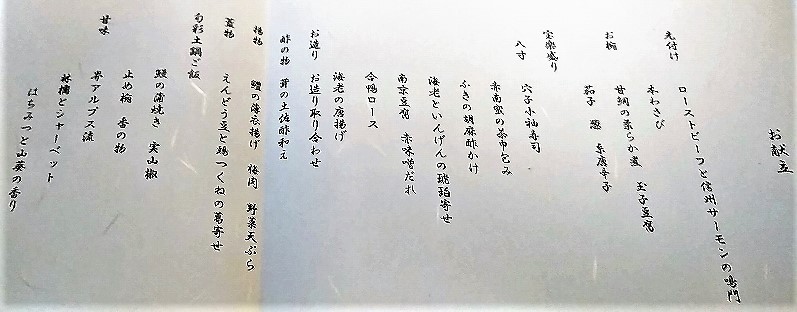 お献立
先付け
ローストビーフと信州サーモンの鳴門
本わさび
お椀
甘鯛の柔らか煮 玉子豆腐
茄子 葱 糸唐辛子
宝楽盛り
八寸
穴子小袖寿司
赤南蛮の茶巾包み
ふきの胡麻酢かけ
海老といんげんの琥珀寄せ
南京豆腐 赤味噌だれ
合鴨ロース
海老の唐揚げ
お造り お造り取り合わせ
酢の物 茸の土佐酢和え
揚物 鱧の薄衣揚げ 梅肉 野菜天ぷら
蓋物 えんどう豆と鶏つくねの葛寄せ
旬彩土鍋ご飯
鰻の蒲焼き 実山椒
止め椀 香の物
甘味 南アルプス流
林檎とシャーベット
はちみつと山葵の香り